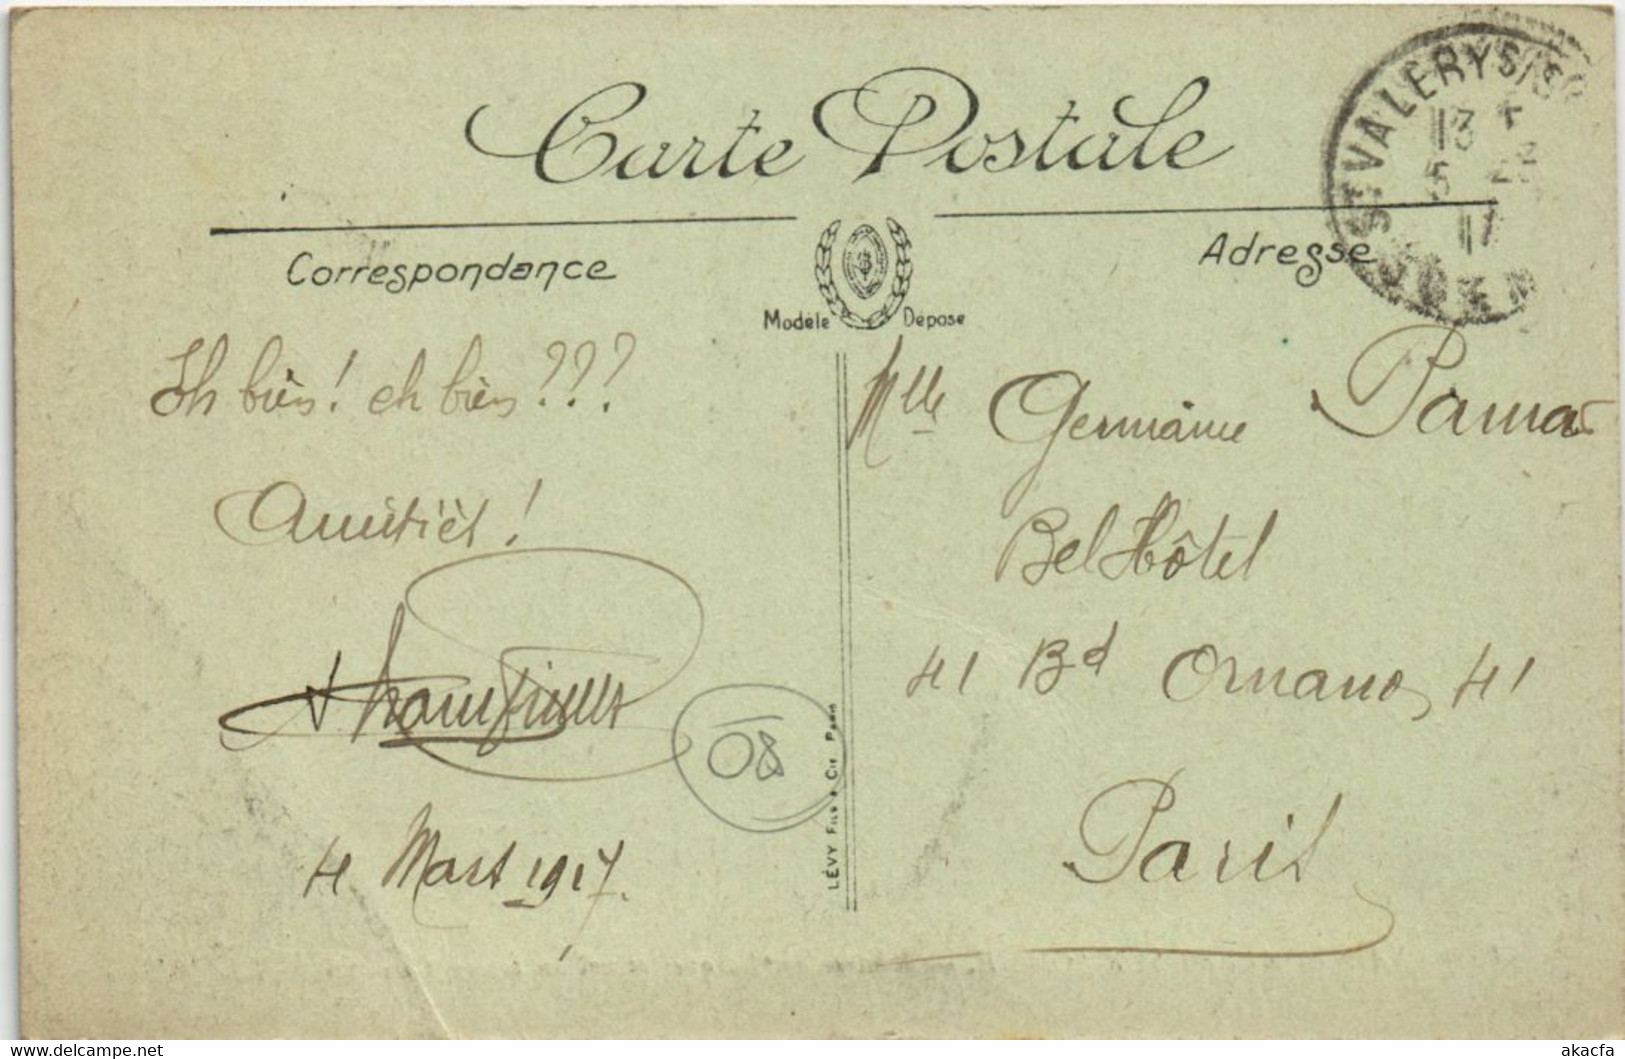 Carte Postale
Correspondance
Adresse
Modèle Déposé
Eh bien! eh bien???
Amitiés!
4 Mars 1917.
08
LÉVY FILS & CIE PARIS
Mlle Germaine
Bel Hôtel
41 Bd Ornano, 41
Paris
ST VALERY S/SO
13
5
17
akacfa delcampe.net